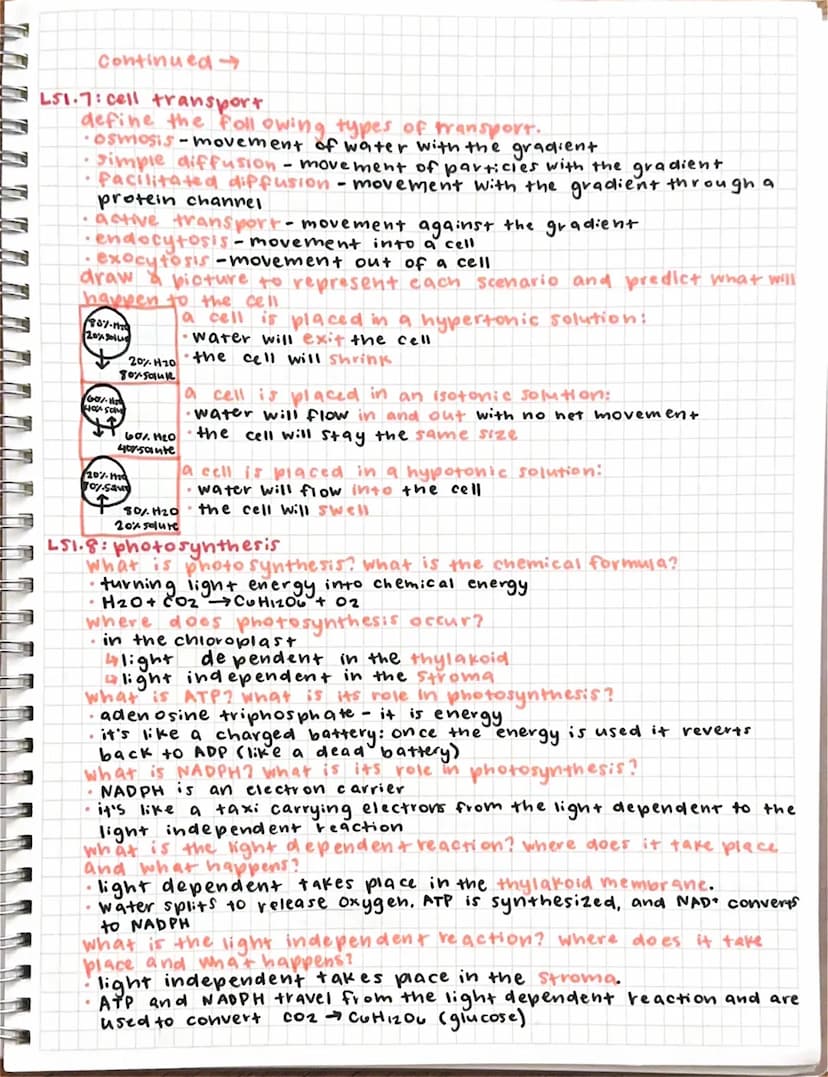 continued →
LS1.7: cell transport
define the following types of transport.
· osmosis - movement of water with the gradient
· simple diffusion - movement of particles with the gradient
· facilitated diffusion - movement with the gradient through a
protein channel
· active transport - movement against the gradient
· endocytosis - movement into a cell
· exocytosis - movement out of a cell
draw a picture to represent each scenario and predict what will
happen to the cell
80% H2O
20% solute
20% H2O
80% solute
a cell is placed in a hypertonic solution:
· water will exit the cell
· the cell will shrink
60% H2O
40% solu
60% H2O
40% solute
a cell is placed in an isotonic solution:
· water will flow in and out with no net movement
· the cell will stay the same size
20% H2O
80% H2O
20% solute
a cell is placed in a hypotonic solution:
· water will flow into the cell
· the cell will swell
LS1.8: photosynthesis
what is photosynthesis? what is the chemical formula?
· turning light energy into chemical energy
· H2O + CO2 → C6H12O6 + O2
where does photosynthesis occur?
· in the chloroplast
↳ light dependent in the thylakoid
↳ light independent in the stroma
what is ATP? what is its role in photosynthesis?
· adenosine triphosphate - it is energy
· it's like a charged battery: once the energy is used it reverts
back to ADP (like a dead battery)
what is NADPH? what is its role in photosynthesis?
· NADPH is an electron carrier
· it's like a taxi carrying electrons from the light dependent to the
light independent reaction
what is the light dependent reaction? where does it take place
and what happens?
· light dependent takes place in the thylakoid membrane.
· water splits to release oxygen, ATP is synthesized, and NAD+ converts
to NADPH
what is the light independent reaction? where does it take
place and what happens?
· light independent takes place in the stroma.
· ATP and NADPH travel from the light dependent reaction and are
used to convert CO2 → C6H12O6 (glucose)